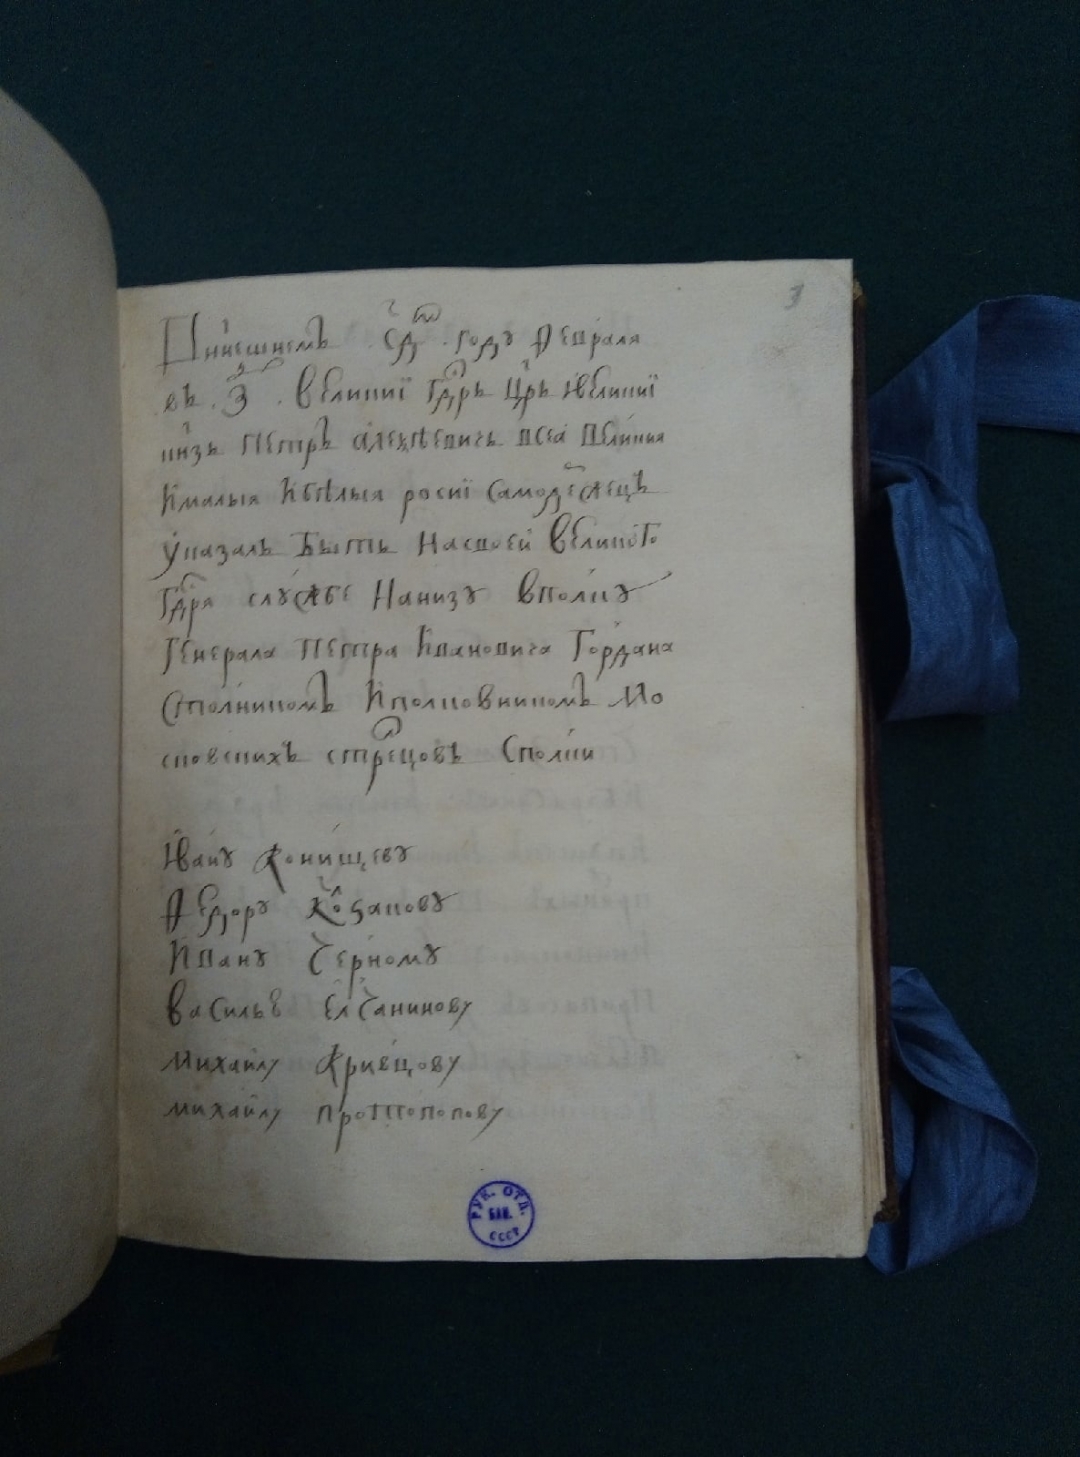 3
Внн̃ешнемъ ҂сд҃ го году Февраля
въ З҃ Великиї Гдⷭ҇рь Црь ї Великиї
кнзь Петръ Алеѯѣевичь всеа Великия
И малыя И бѣлыя росиї Самодержецъ
Указалъ Быть На своеї Великого
Гдⷭ҇ря службе Нанизу в полку
Генерала Петра Ивановича Гордана
Столником И полковником Мо
сковских стрелцовъ Столни
Івану Конищеву
Федору Козакову
Ивану Черному
Василью Елчанинову
Михаилу Кривцову
Михаилу протопопову
РУК. ОТД.
БАН.
СССР